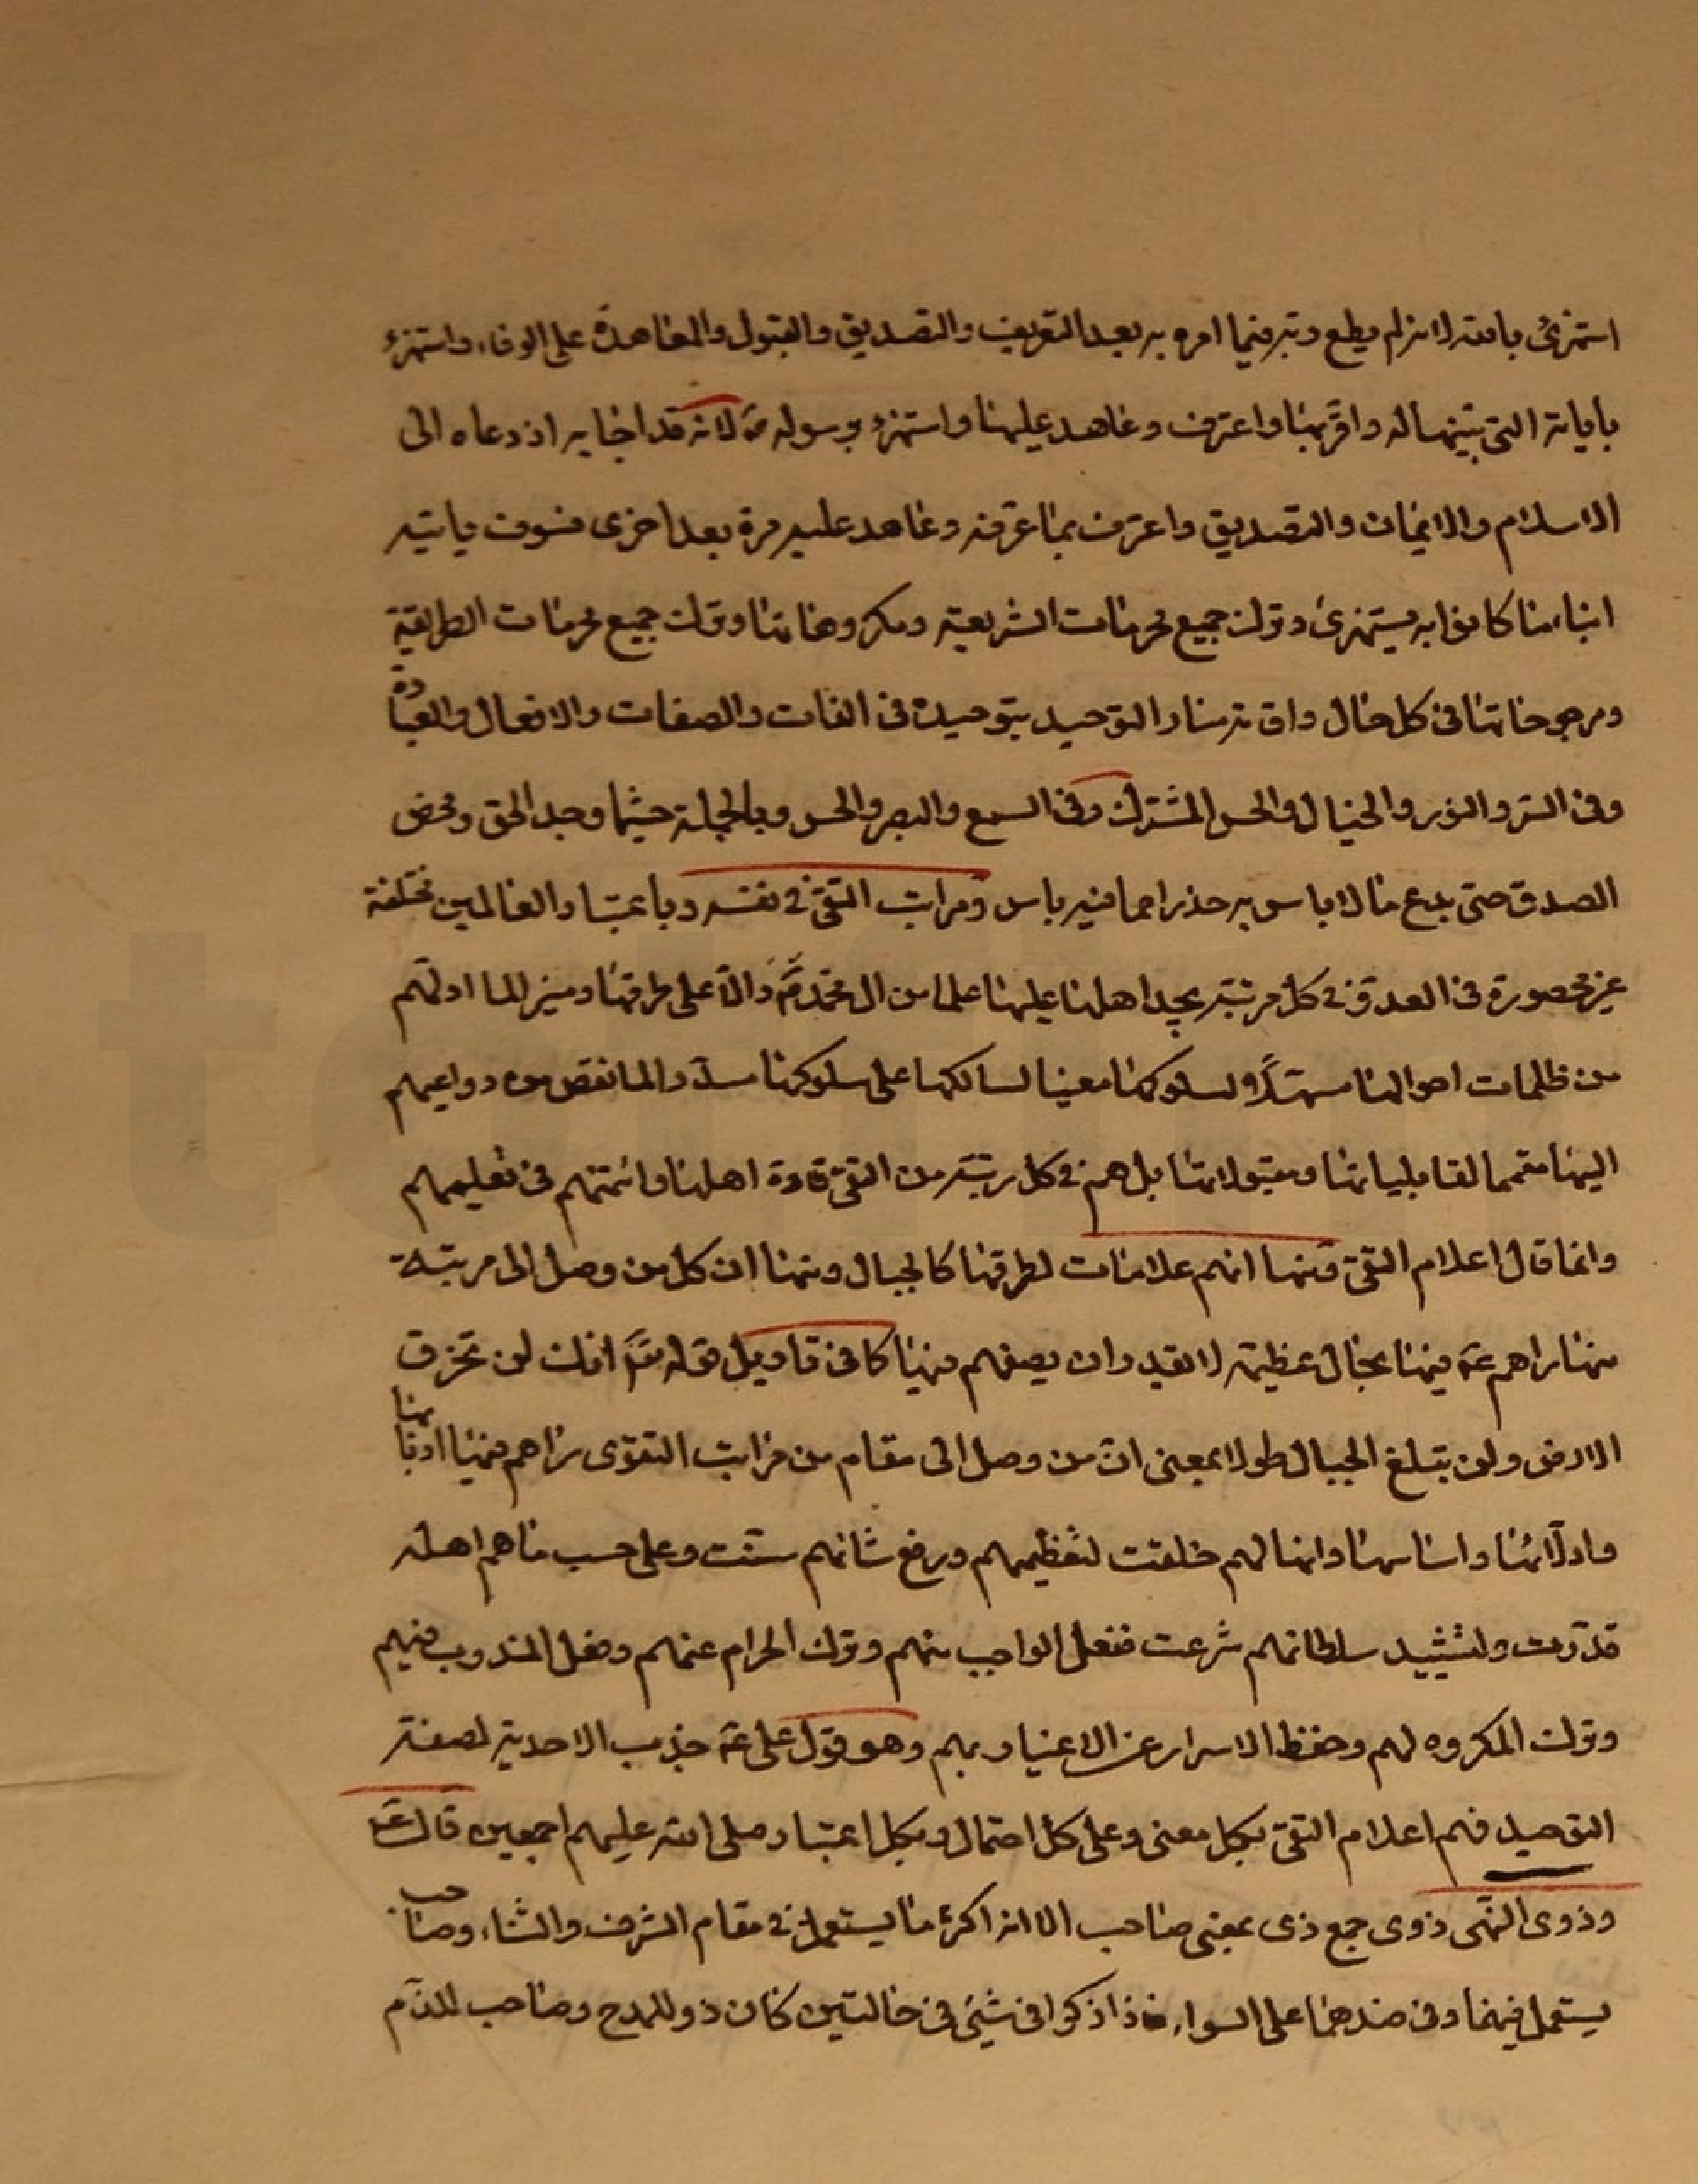 استهزئ بالله لانه لم يطع ربه فيما امره به بعد التعريف والتصديق والقبول والمعاهدة على الوفاء واستهزء
باياته التي بينها له واقر بها واعترف وعاهد عليها واستهزء برسوله ص لانه قد اجابه اذ دعاه الى
الاسلام والايمان والتصديق واعترف بما عرفه وعاهد عليه مرة بعد اخرى فسوف ياتيه
انباء ما كانوا به يستهزئ وترك جميع محرمات الشريعة ومكروهاتها وترك جميع محرمات الطريقة
ومرجوحاتها في كل حال واقامة منار التوحيد بتوحيده في الذات والصفات والافعال والعبادة
وفي السر والنور والخيال والحس المشترك وفي السمع والبصر والحس وبالجملة حيثما وجد الحق ومحض
الصدق حتى يدع ما لا باس به حذرا مما فيه باس ومراتب التقى في نفسه وباعتبار العالمين مختلفة
غير محصورة في العدد وفي كل مرتبة يجد اهلها عليها علما من ال محمد ص دالا على طرقها ومنيرا لما ادلهم
من ظلمات احوالها مسهلا لسلوكها معينا لسالكها على سلوكها مسددا لما نقص من دواعيهم
اليها متمما لقابلياتها ومقبولاتها بل هم في كل رتبة من التقى قادة اهلها وائمتهم في تعليمهم
وانما قال اعلام التقى فمنها انهم علامات لطرقها كالجبال ومنها ان كل من وصل الى مرتبة
منها راهم ع فيها بحال عظيمة لا يقدر ان يصفهم فيها كما في تاويل قوله تع انك لن تخرق
الارض ولن تبلغ الجبال طولا بمعنى ان من وصل الى مقام من مراتب التقوى راهم فيها اربابها
وادلائها واساسها وانها لهم خلقت لتعظيمهم ورفع شانهم سنت وعلى حسب ما هم اهله
قدرت ولتشييد سلطانهم شرعت ففعل الواجب منهم وترك الحرام عنهم وفعل المندوب فيهم
وترك المكروه لهم وحفظ الاسرار عن الاغيار بهم وهو قول على ع جذب الاحدية لصفة
التوحيد فهم اعلام التقى بكل معنى وعلى كل احتمال وبكل اعتبار صلى الله عليهم اجمعين قال ع
وذوى النهى ذوى جمع ذى بمعنى صاحب الا انه اكثر ما يستعمل في مقام الشرف والثناء وصاحب
يستعمل فيهما وفي ضدهما على السواء فاذا ذكرا في شئ في حالتين كان ذو للمدح وصاحب للذم